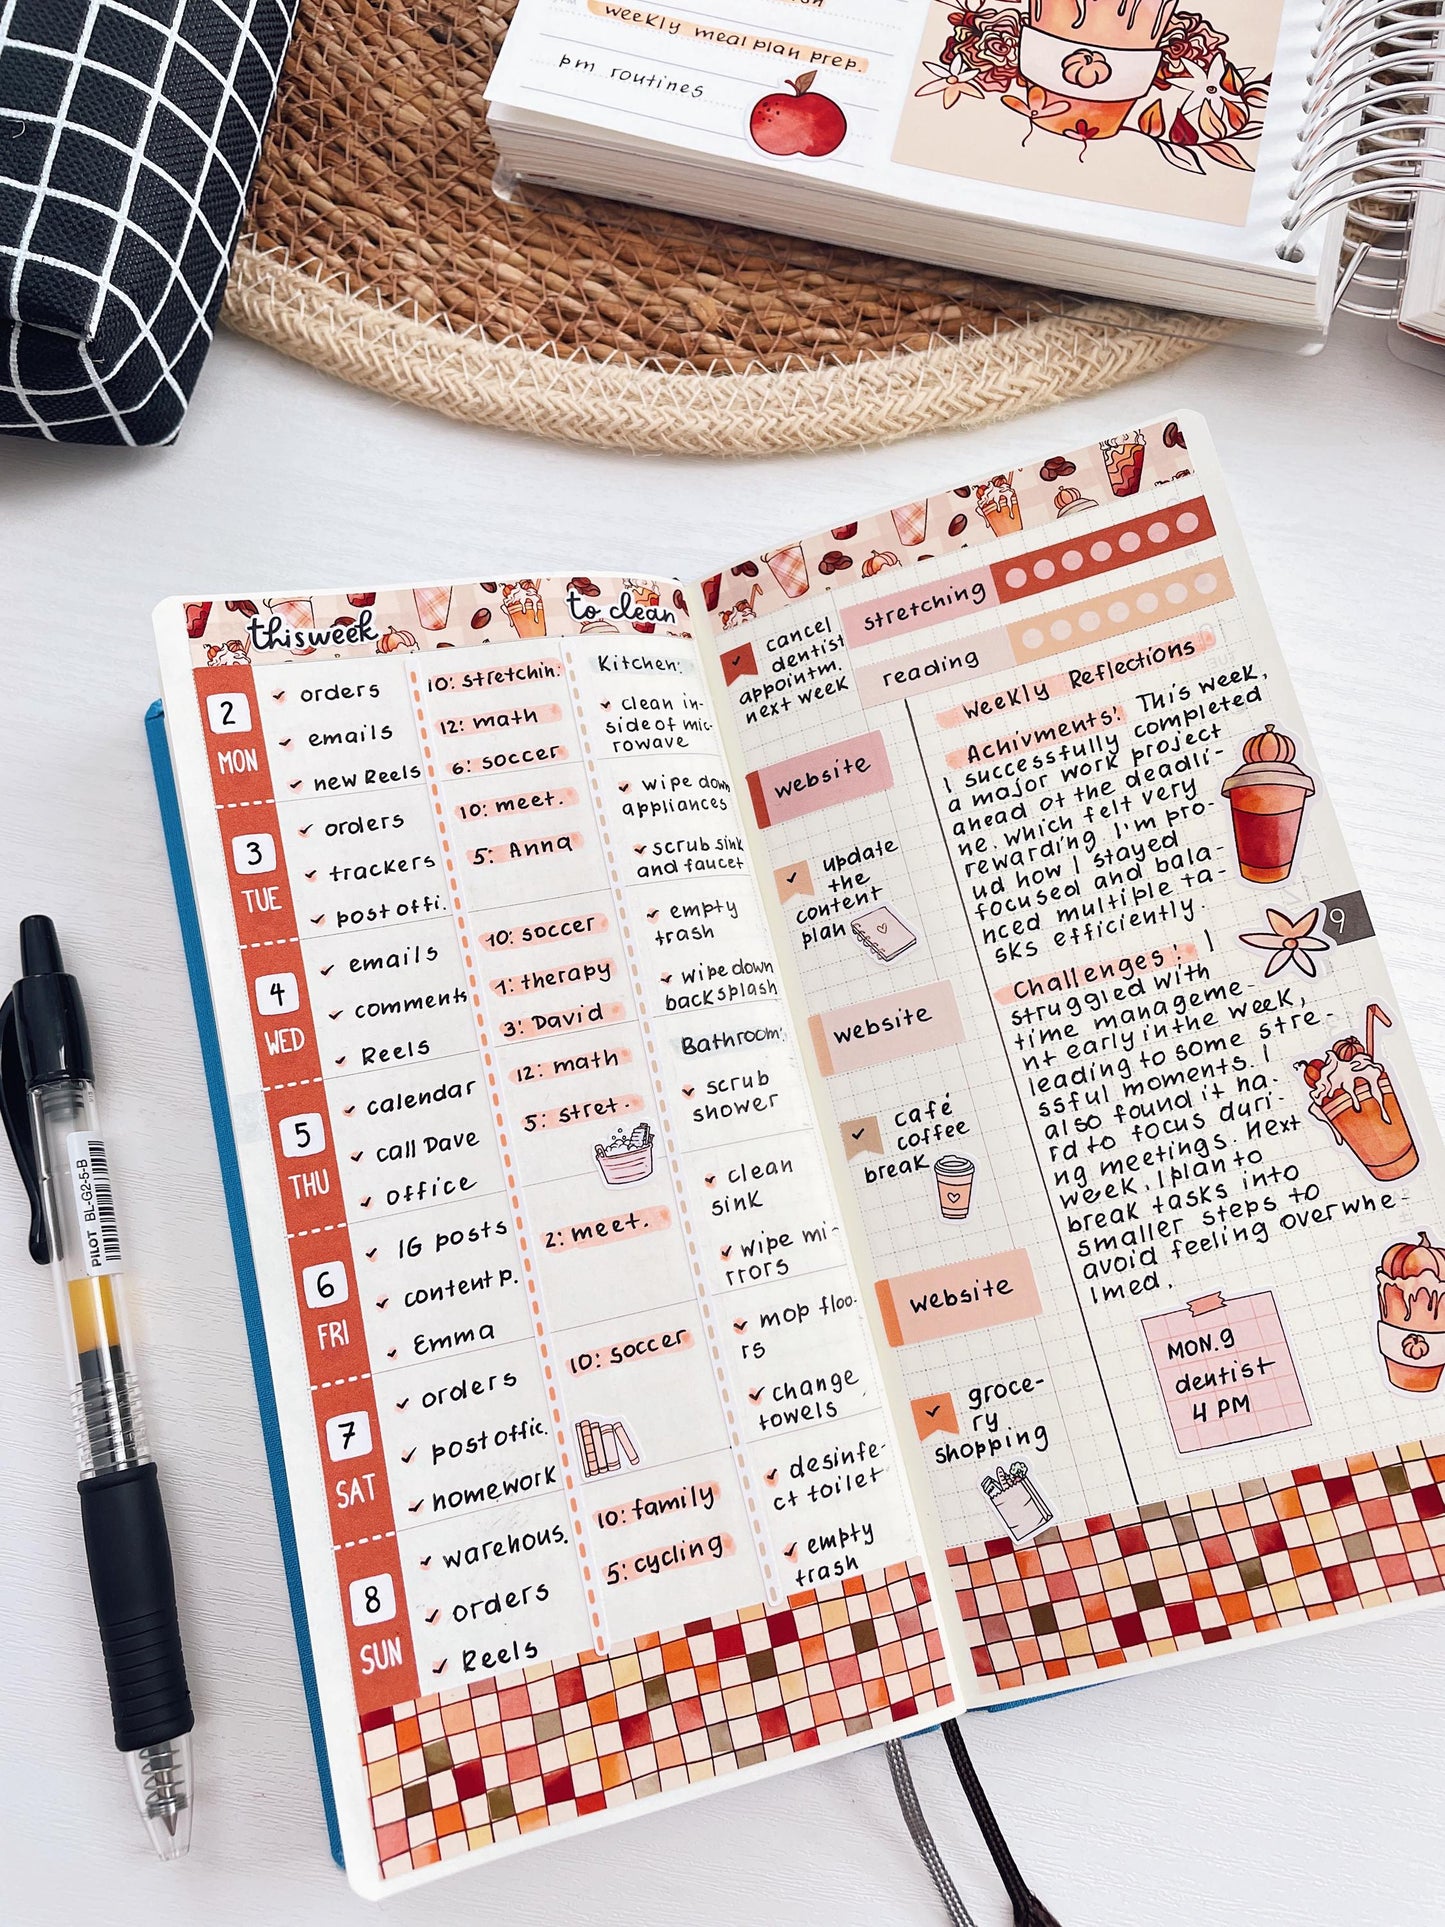 weekly meal plan prep.
pm routines
this week
to clean
2
MON
✓ orders
✓ emails
✓ new Reels
10: stretchin.
12: math
6: soccer
3
TUE
✓ orders
✓ trackers
✓ post offi.
10: meet.
5: Anna
4
WED
✓ emails
✓ comments
✓ Reels
10: soccer
1: therapy
3: David
5
THU
✓ calendar
✓ call Dave
✓ office
12: math
5: stret.
6
FRI
✓ IG posts
✓ content p.
✓ Emma
2: meet.
7
SAT
✓ orders
✓ post offic.
✓ homework
10: soccer
8
SUN
✓ warehous.
✓ orders
✓ Reels
10: family
5: cycling
Kitchen:
✓ clean in-
side of mic-
rowave
✓ wipe down
appliances
✓ scrub sink
and faucet
✓ empty
trash
✓ wipe down
backsplash
Bathroom:
✓ scrub
shower
✓ clean
sink
✓ wipe mi-
rrors
✓ mop floo-
rs
✓ change
towels
✓ desinfe-
ct toilet
✓ empty
trash
✓ cancel
dentist
appointm.
next week
website
✓ update
the
content
plan
website
✓ café
coffee
break
website
✓ groce-
ry
shopping
stretching
reading
Weekly Reflections
Achivments: This week,
I successfully completed
a major work project
ahead of the deadli-
ne, which felt very
rewarding. I'm pro-
ud how I stayed
focused and bala-
nced multible ta-
sks efficiently.
Challenges: I
struggled with
time manageme-
nt early in the week,
leading to some stre-
ssful moments. I
also found it ha-
rd to focus duri-
ng meetings. Next
week, I plan to
break tasks into
smaller steps to
avoid feeling overwhe-
lmed.
9
MON.9
dentist
4 PM
PILOT BL-G2-5-B